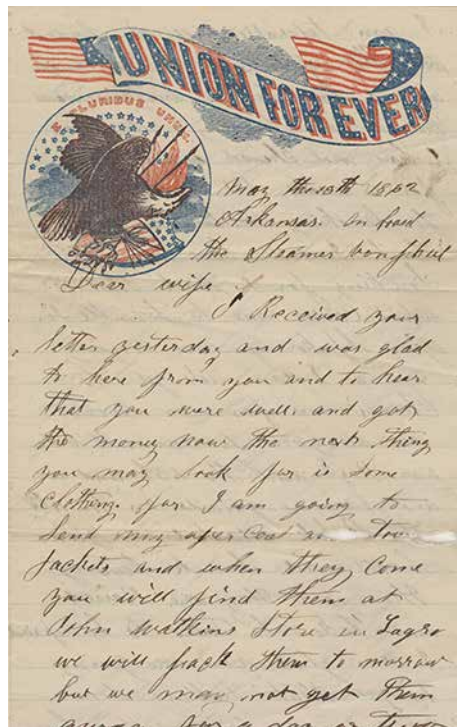 UNION FOR EVER
E PLURIBUS UNUM
May the 18th 1862
Arkansas. on board
the Steamer Von phul
Dear wife
I Received your
letter yesterday and was glad
to here from you and to hear
that you were well and got
the money now the next thing
you may look for is some
clothing. for I am going to
send my over coat and tow
Jackets and when they come
you will find them at
John Watkins Store in Lagro
we will pack them to morrow
but we may not get them
away for a day or two